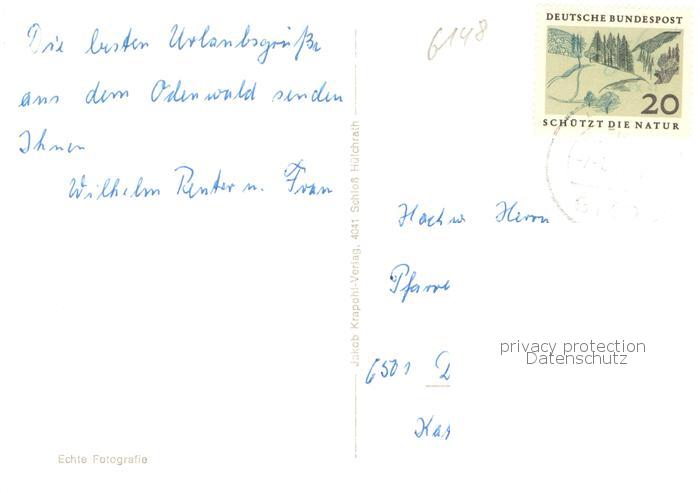 Die besten Urlaubsgrüße
aus dem Odenwald senden
Ihnen
Wilhelm Reuter u. Frau
Echte Fotografie
Jakob Krapohl-Verlag, 4041 Schloß Hülchrath
6148
DEUTSCHE BUNDESPOST
20
SCHÜTZT DIE NATUR
Hochw Herrn
Pfarre
6501 D
Kas
privacy protection
Datenschutz